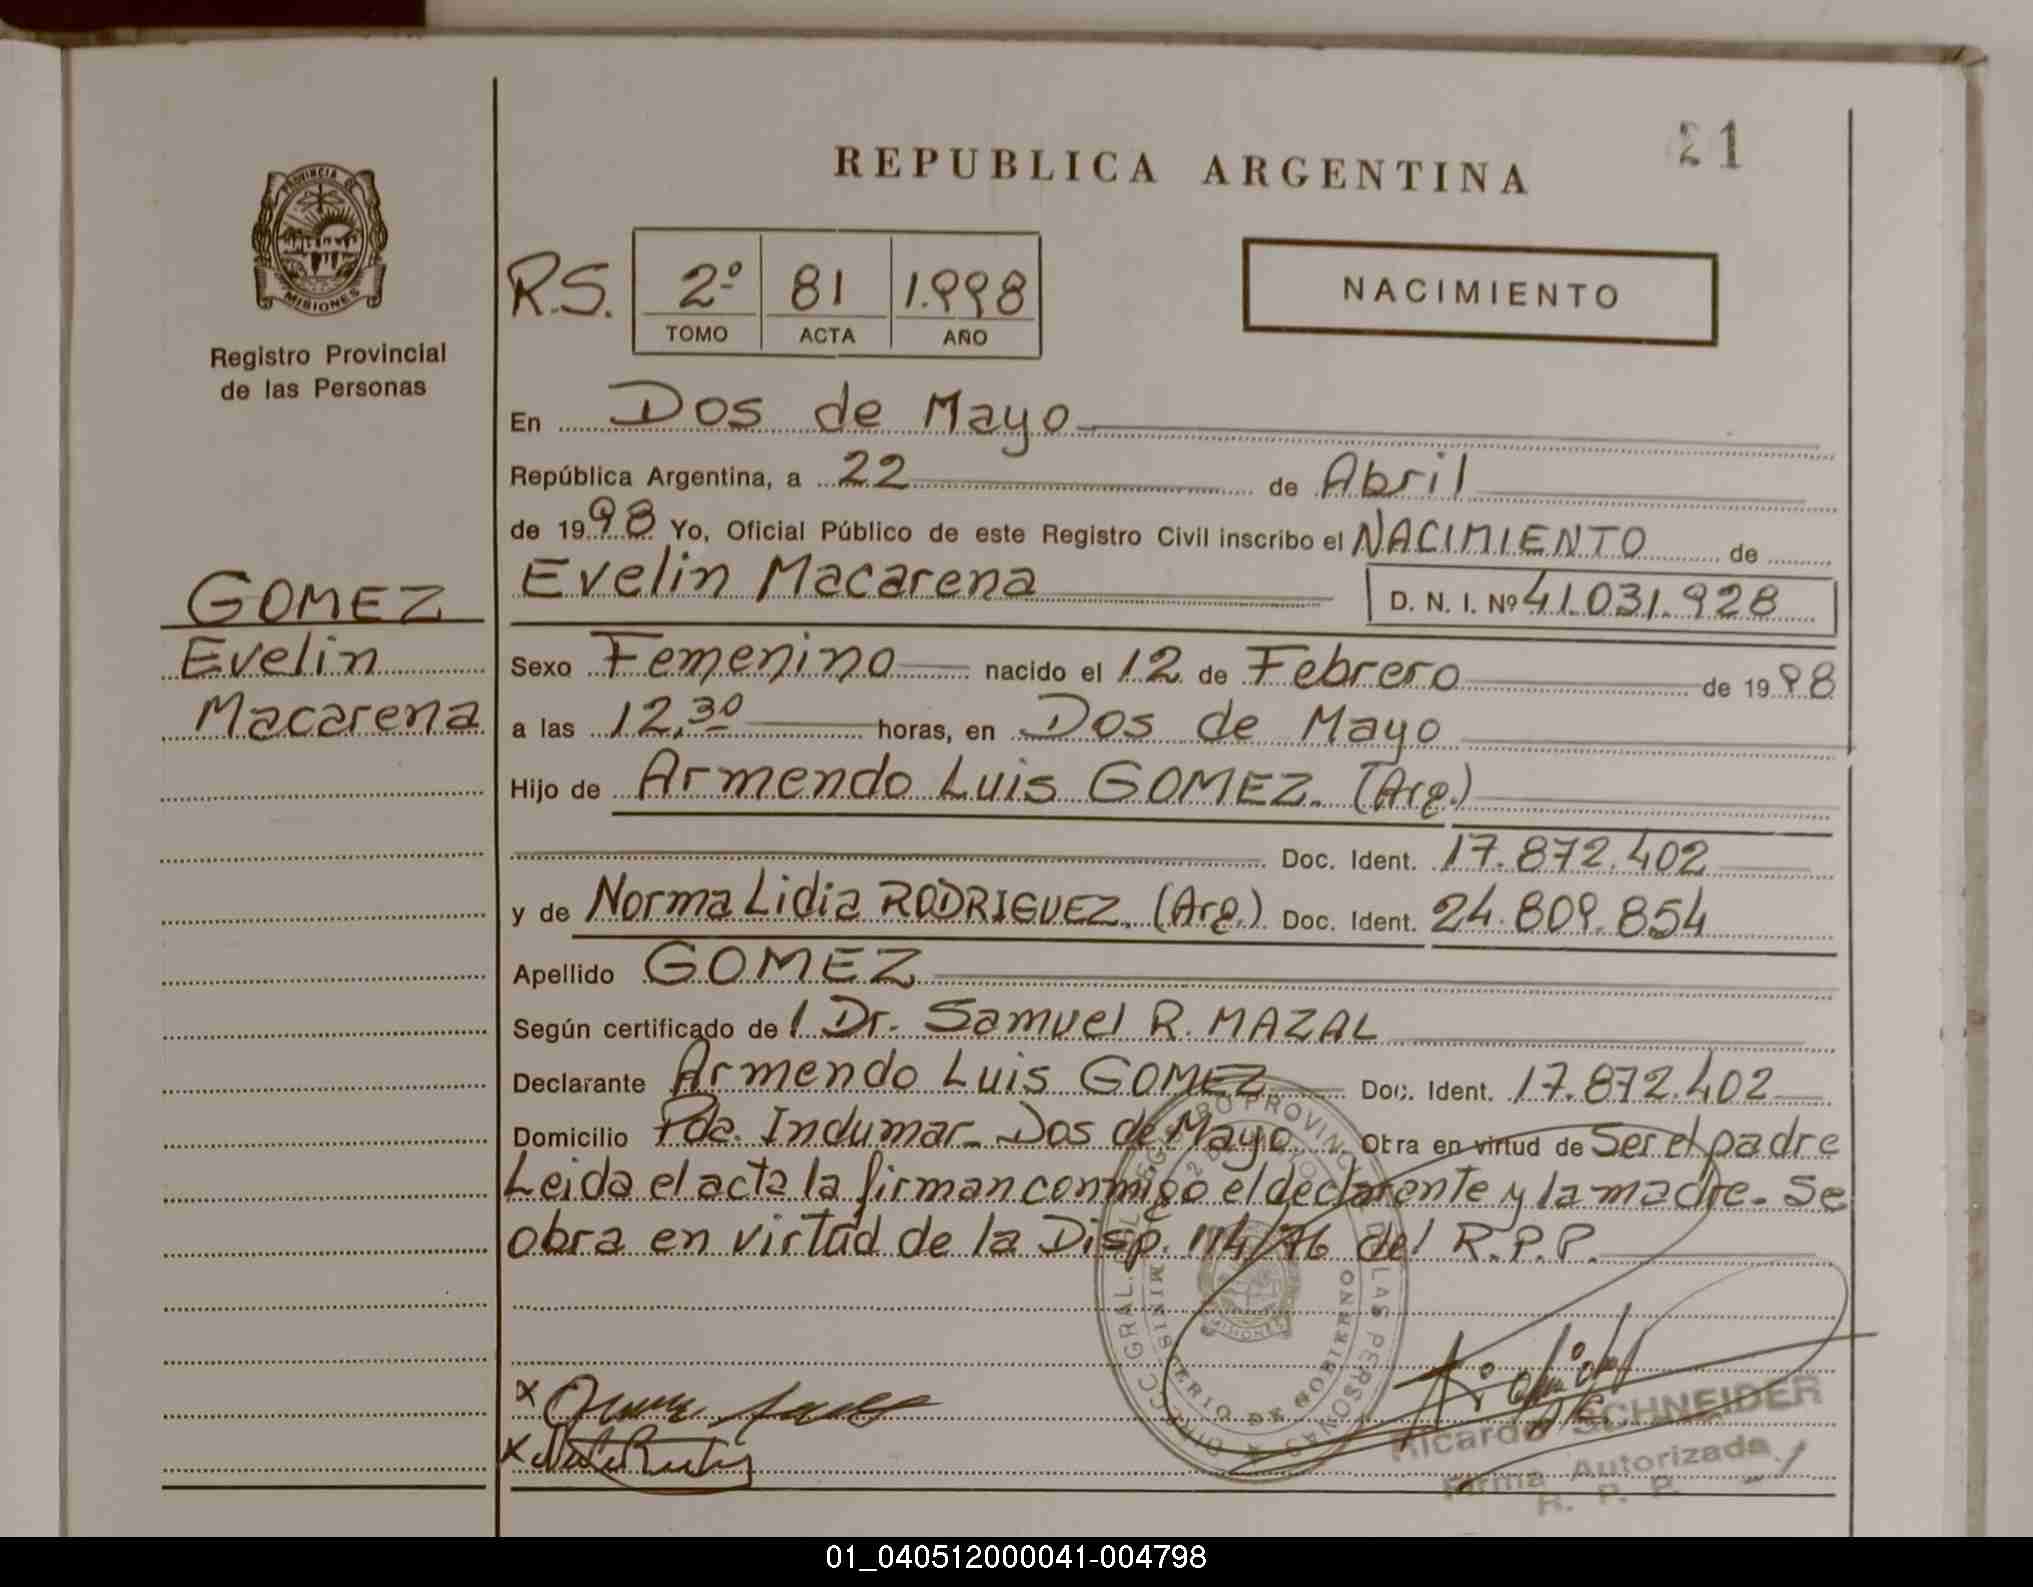 21
REPUBLICA ARGENTINA
PROVINCIA DE
MISIONES
Registro Provincial
de las Personas
R.S. 2º 81 1.998
TOMO ACTA AÑO
NACIMIENTO
En Dos de Mayo
República Argentina, a 22 de Abril
de 1998 Yo, Oficial Público de este Registro Civil inscribo el NACIMIENTO de
Evelin Macarena D. N. I. Nº 41.031.928
GOMEZ
Evelin
Macarena
Sexo Femenino nacido el 12 de Febrero de 1998
a las 12,30 horas, en Dos de Mayo
Hijo de Armendo Luis GOMEZ. (Arg.)
Doc. Ident. 17.872.402
y de Norma Lidia RODRIGUEZ. (Arg.) Doc. Ident. 24.809.854
Apellido GOMEZ
Según certificado de l Dr. Samuel R. MAZAL
Declarante Armendo Luis GOMEZ Doc. Ident. 17.872.402
Domicilio Pda. Indumar - Dos de Mayo Obra en virtud de Ser el padre
Leida el acta la firman conmigo el declarente y la madre. Se
obra en virtud de la Disp. 114/76 del R.P.P.
MISIONES
MINISTERIO DE GOBIERNO
Ricardo SCHNEIDER
Firma Autorizada
R. P. P.
01_040512000041-004798